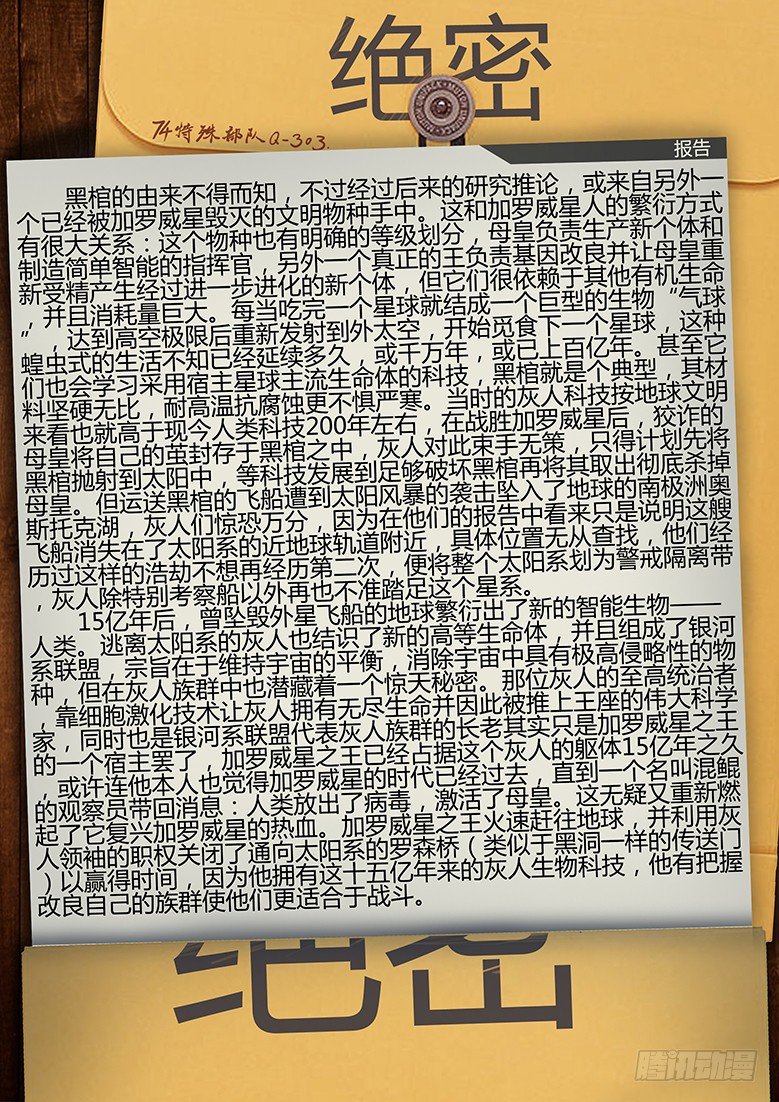 绝密
74特殊部队Q-303.
报告
黑棺的由来不得而知，不过经过后来的研究推论，或来自另外一
个已经被加罗威星毁灭的文明物种手中。这和加罗威星人的繁衍方式
有很大关系：这个物种也有明确的等级划分，母皇负责生产新个体和
制造简单智能的指挥官，另外一个真正的王负责基因改良并让母皇重
新受精产生经过进一步进化的新个体，但它们很依赖于其他有机生命
，并且消耗量巨大。每当吃完一个星球就结成一个巨型的生物“气球
”，达到高空极限后重新发射到外太空，开始觅食下一个星球，这种
蝗虫式的生活不知已经延续多久，或千万年，或已上百亿年。甚至它
们也会学习采用宿主星球主流生命体的科技，黑棺就是个典型，其材
料坚硬无比，耐高温抗腐蚀更不惧严寒。当时的灰人科技按地球文明
来看也就高于现今人类科技200年左右，在战胜加罗威星后，狡诈的
母皇将自己的茧封存于黑棺之中，灰人对此束手无策，只得计划先将
黑棺抛射到太阳中，等科技发展到足够破坏黑棺再将其取出彻底杀掉
母皇。但运送黑棺的飞船遭到太阳风暴的袭击坠入了地球的南极洲奥
斯托克湖，灰人们惊恐万分，因为在他们的报告中看来只是说明这艘
飞船消失在了太阳系的近地球轨道附近，具体位置无从查找，他们经
历过这样的浩劫不想再经历第二次，便将整个太阳系划为警戒隔离带
，灰人除特别考察船以外再也不准踏足这个星系。
15亿年后，曾坠毁外星飞船的地球繁衍出了新的智能生物——
人类。逃离太阳系的灰人也结识了新的高等生命体，并且组成了银河
系联盟，宗旨在于维持宇宙的平衡，消除宇宙中具有极高侵略性的物
种，但在灰人族群中也潜藏着一个惊天秘密。那位灰人的至高统治者
，靠细胞激化技术让灰人拥有无尽生命并因此被推上王座的伟大科学
家，同时也是银河系联盟代表灰人族群的长老其实只是加罗威星之王
的一个宿主罢了，加罗威星之王已经占据这个灰人的躯体15亿年之久
，或许连他本人也觉得加罗威星的时代已经过去，直到一个名叫混鲲
的观察员带回消息：人类放出了病毒，激活了母皇。这无疑又重新燃
起了它复兴加罗威星的热血。加罗威星之王火速赶往地球，并利用灰
人领袖的职权关闭了通向太阳系的罗森桥（类似于黑洞一样的传送门
）以赢得时间，因为他拥有这十五亿年来的灰人生物科技，他有把握
改良自己的族群使他们更适合于战斗。
绝密
腾讯动漫